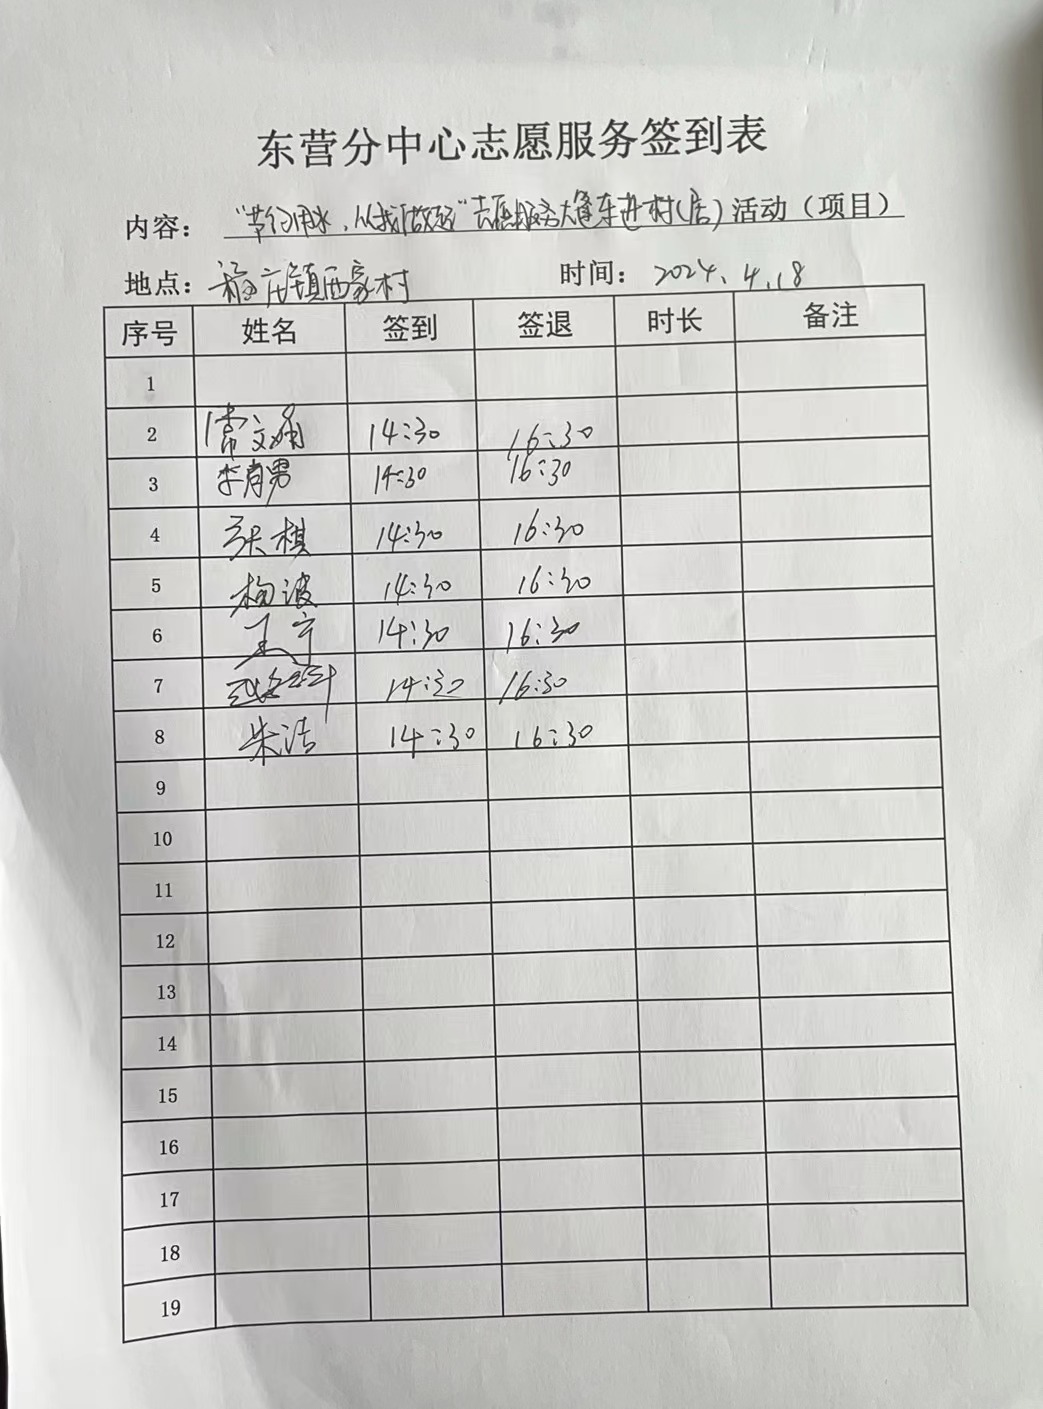 东营分中心志愿服务签到表
内容： "节约用水，从我做起"志愿服务大篷车进村（居）活动（项目）
地点： 庄镇西家村 时间： 2024.4.18
序号 姓名 签到 签退 时长 备注
1
2 常文娟 14:30 16:30
3 李肖男 14:30 16:30
4 张棋 14:30 16:30
5 杨波 14:30 16:30
6 王宁 14:30 16:30
7 14:30 16:30
8 朱洁 14:30 16:30
9
10
11
12
13
14
15
16
17
18
19